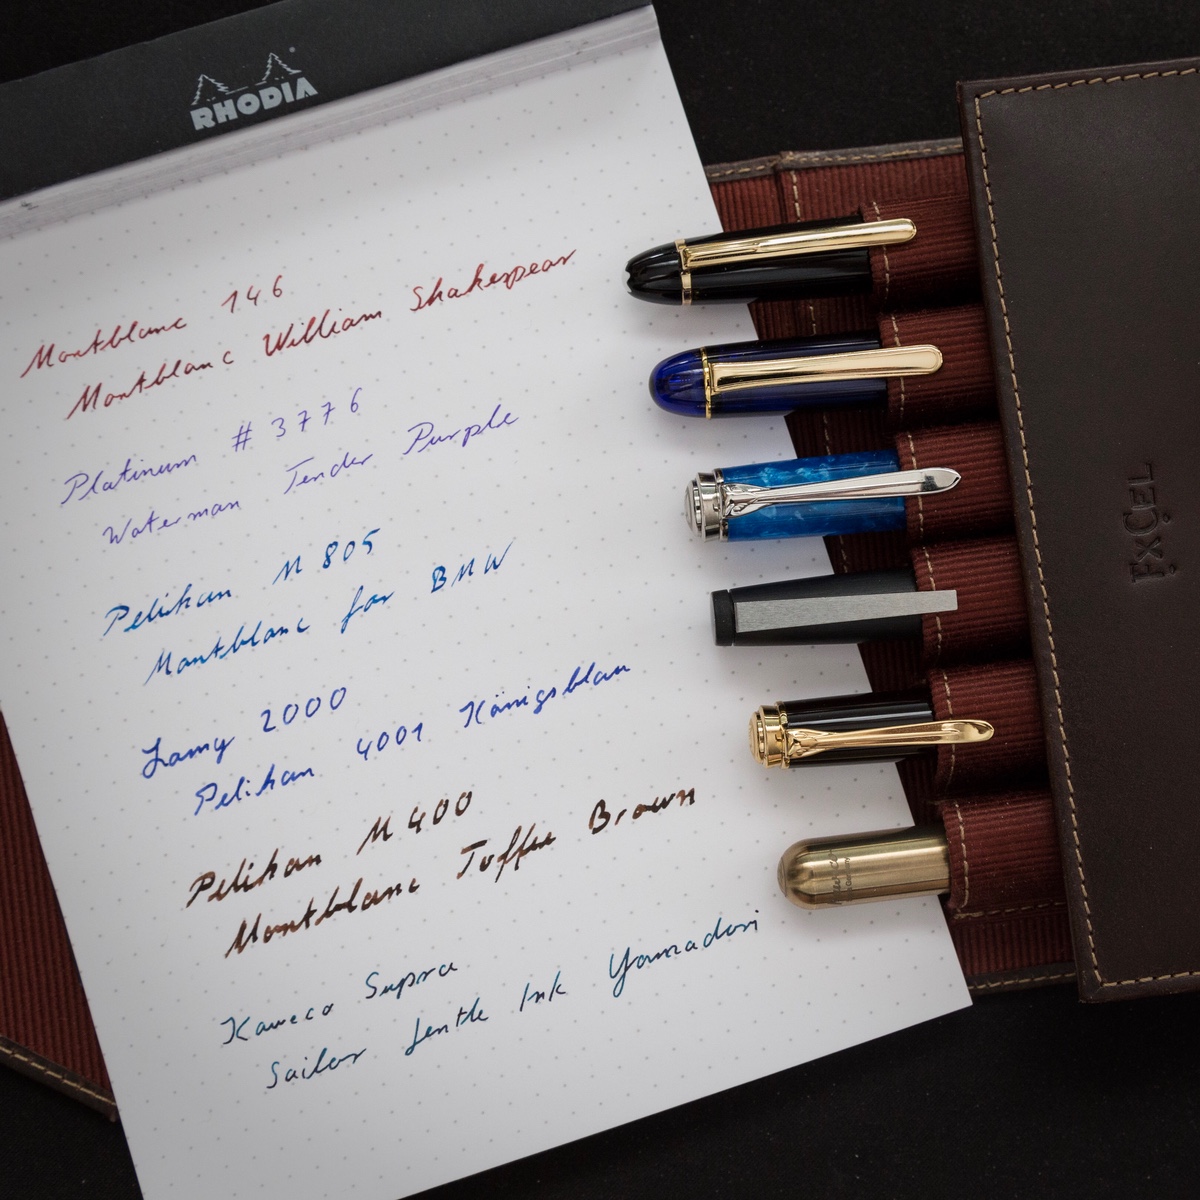 RHODIA
Montblanc 146
Montblanc William Shakespear
Platinum # 3776
Waterman Tender Purple
Pelikan M 805
Montblanc for BMW
Lamy 2000
Pelikan 4001 Königsblau
Pelikan M 400
Montblanc Toffee Brown
Kaweco Supra
Sailor Jentle Ink Yamadori